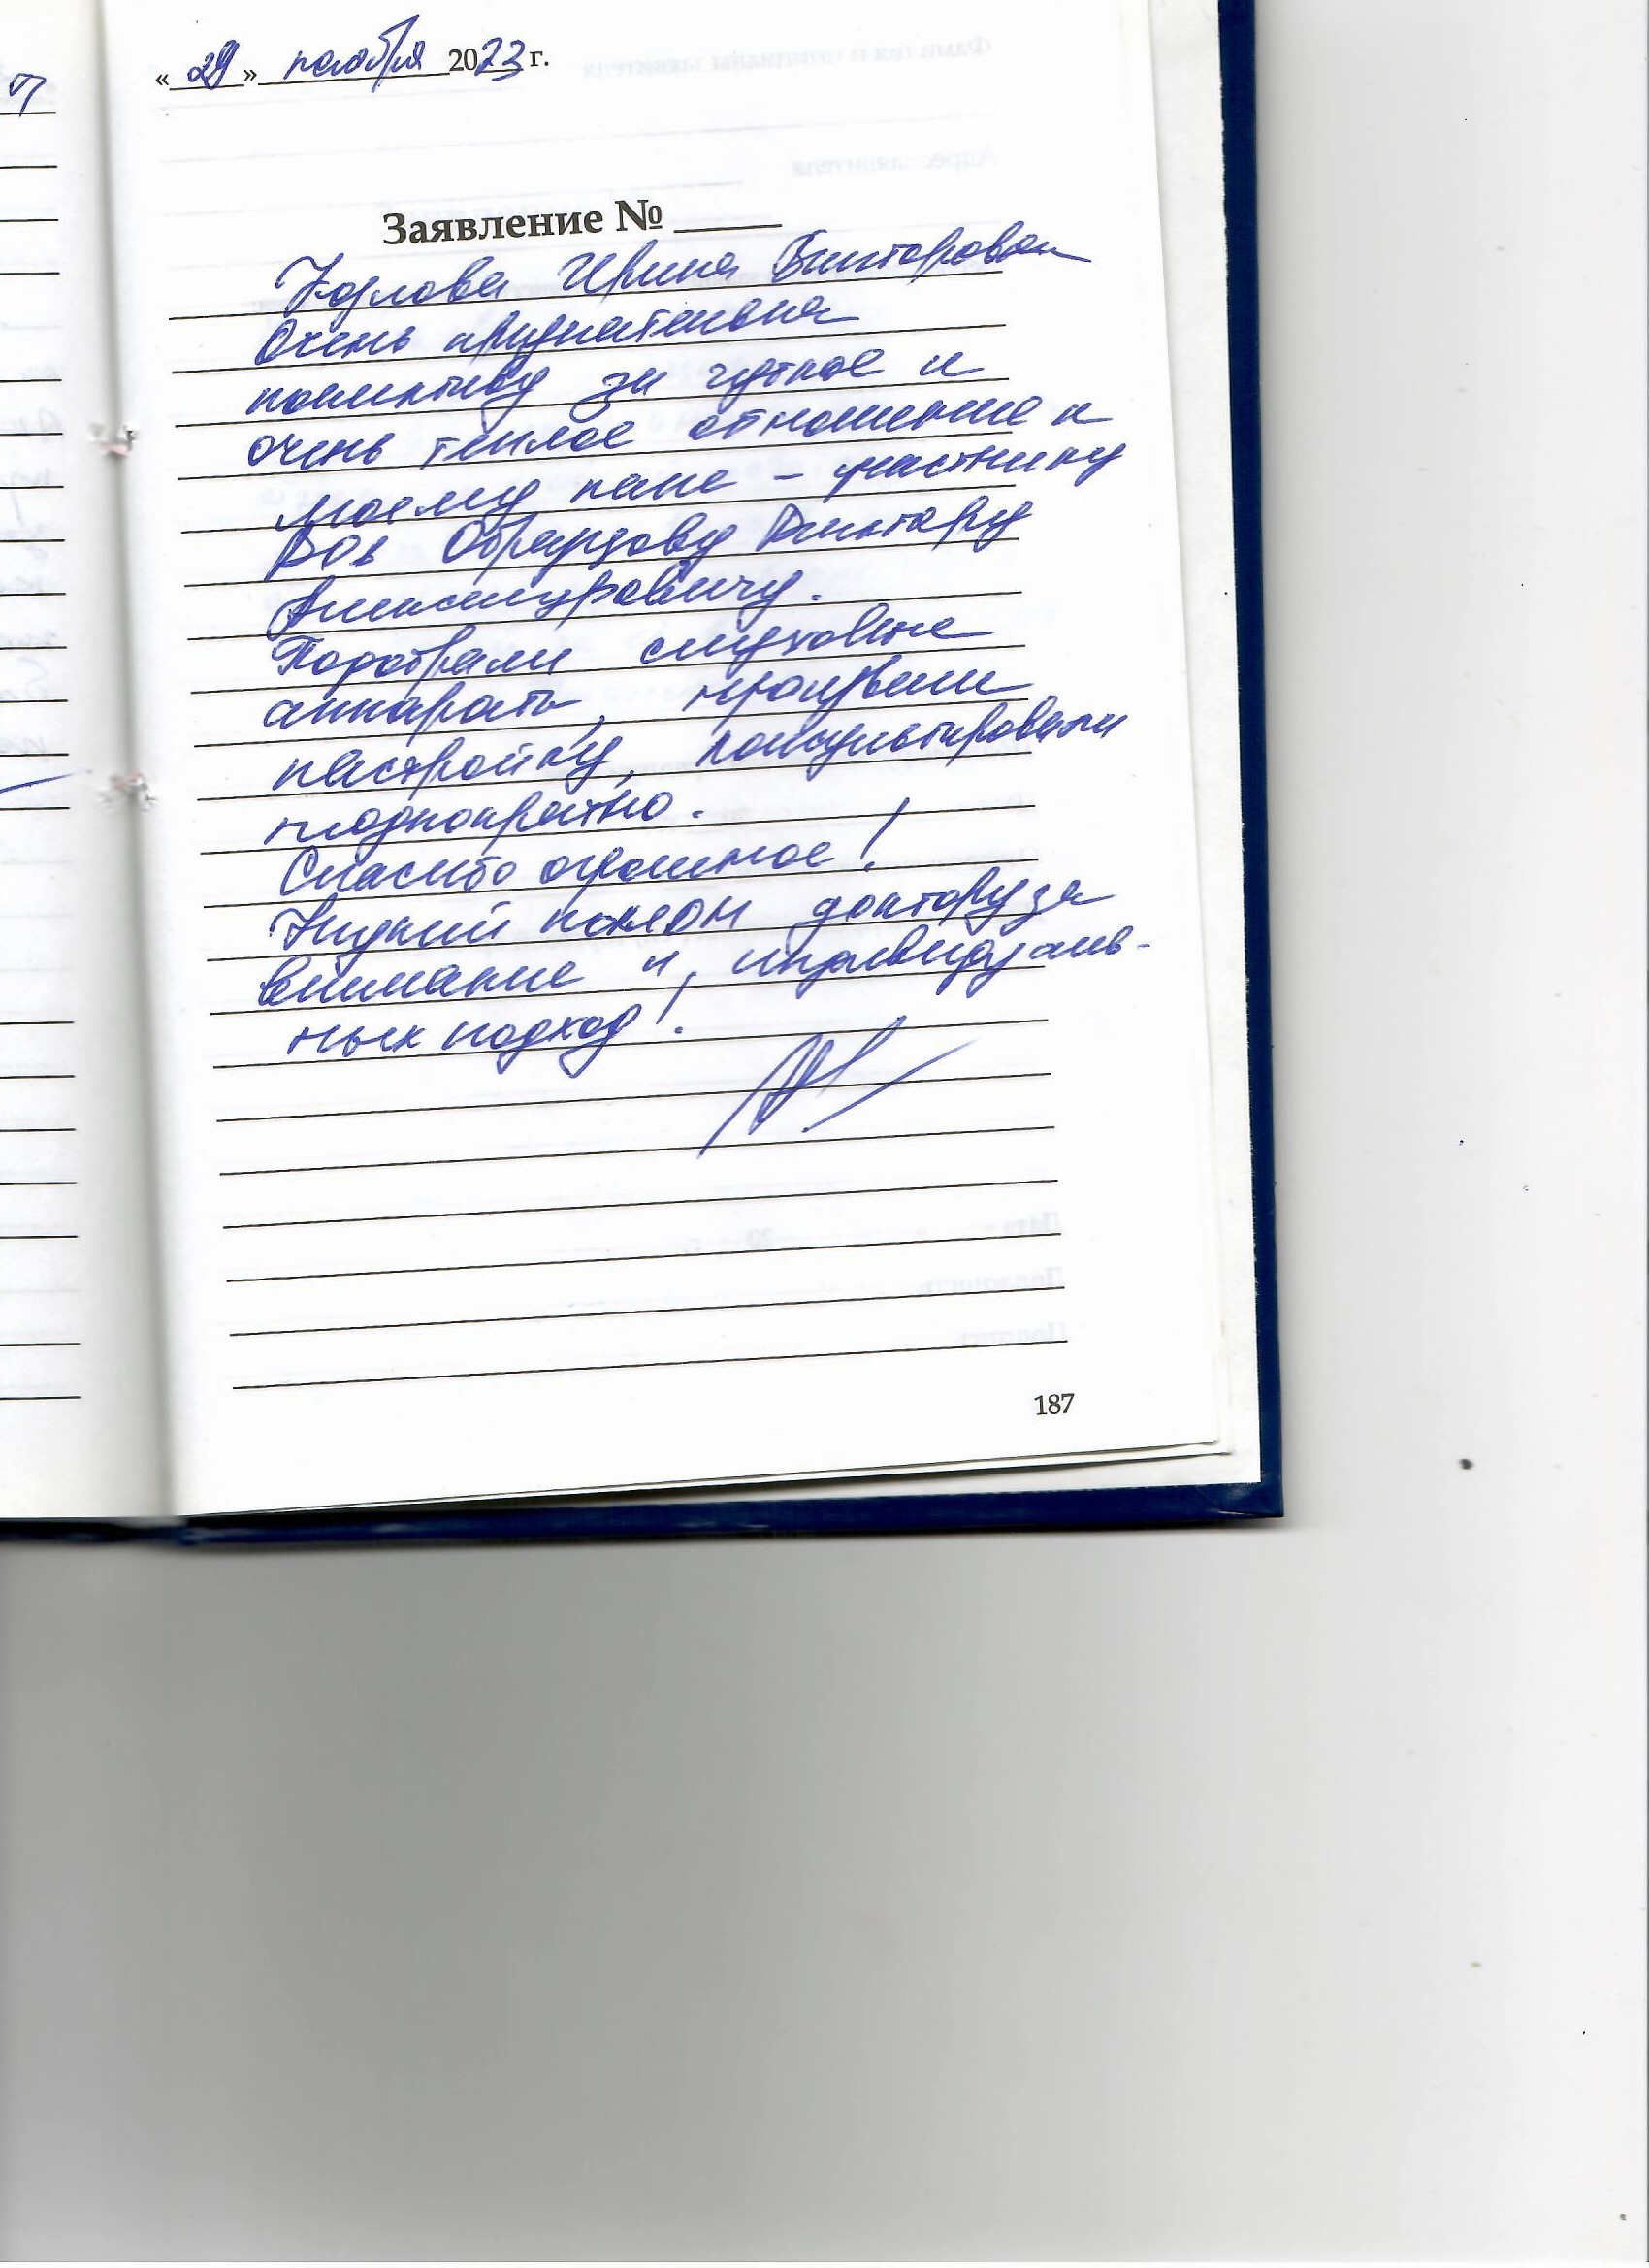 « 29 » ноября 2023 г.
Заявление №
Козлова Ирина Викторовна
Очень признательна
коллективу за чуткое и
очень теплое отношение к
моему папе – участнику
ВОв Образцову Виктору
Александровичу.
Подобрали слуховые
аппараты, произвели
настройку, консультировали
неоднократно.
Спасибо огромное!
Низкий поклон доктору за
внимание и, индивидуаль-
ных подход!
187